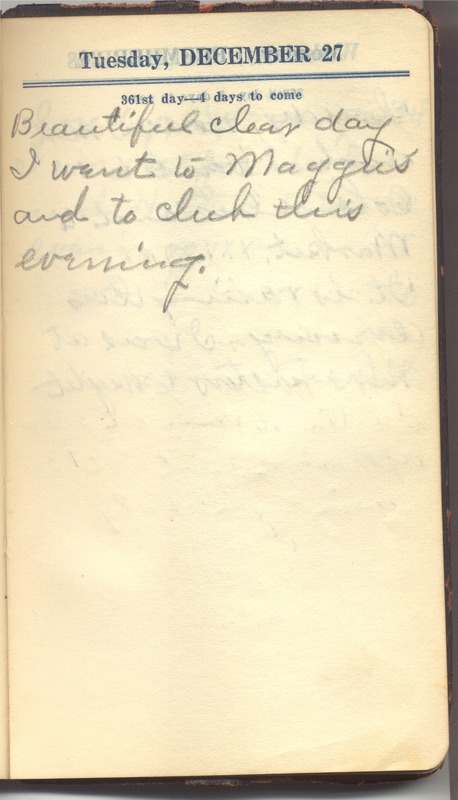 Tuesday, DECEMBER 27
361st day—4 days to come
Beautiful clear day
I went to Maggie's
and to club this
evening.